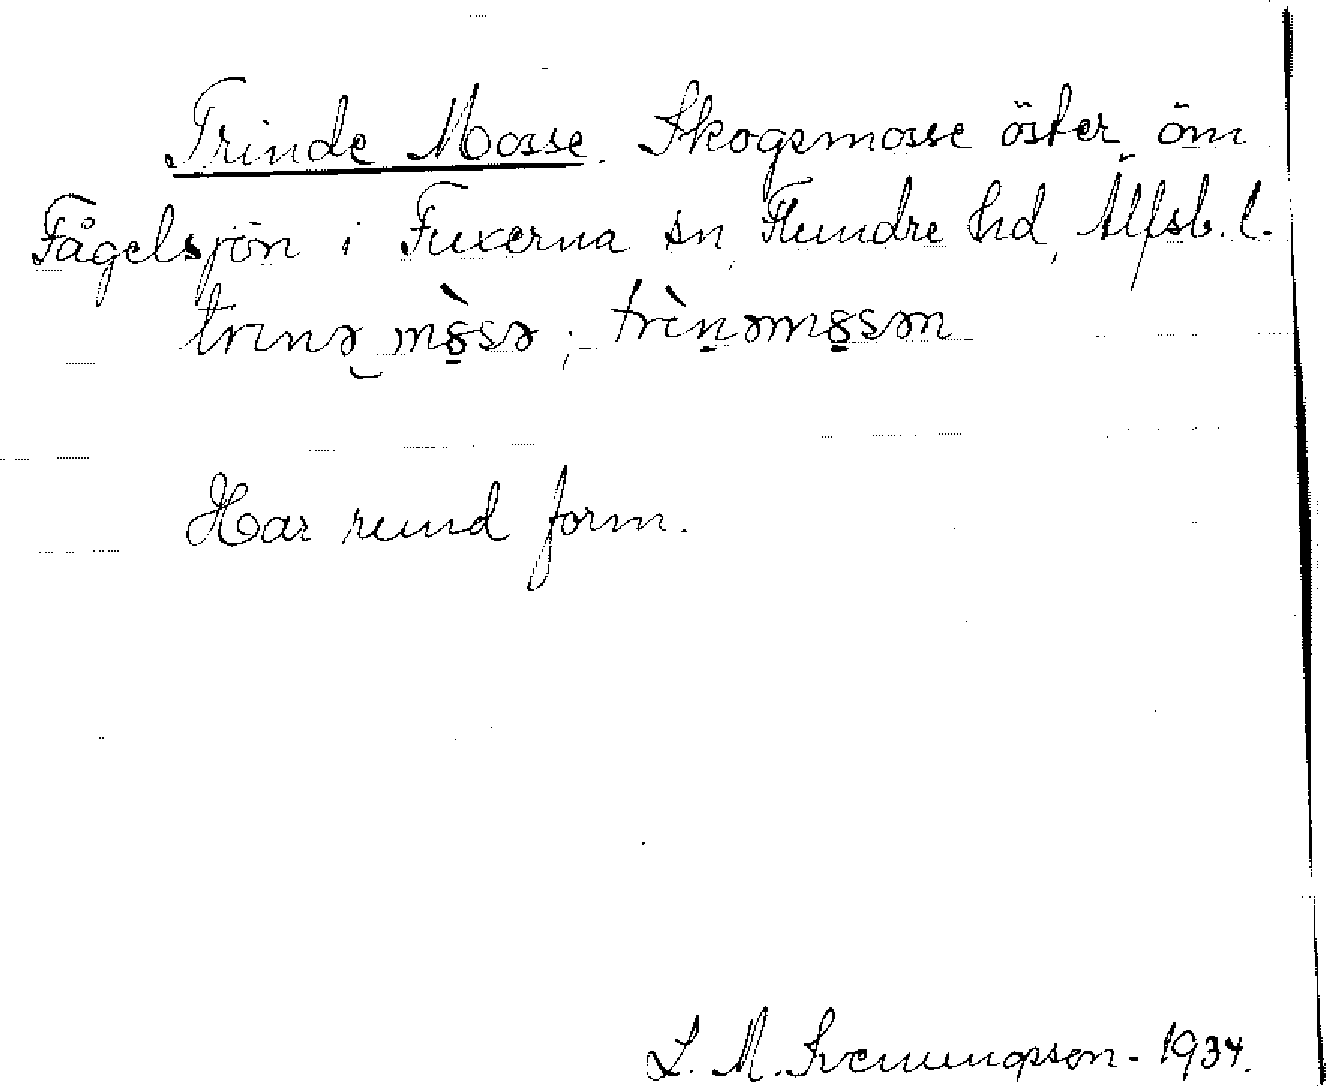 Trinde Mosse. Skogsmosse öster om
Fågelsjön i Fuxerna sn, Flundre hd, Älfsb. l.
trinə mò̱sə; trìṉəmo̱sən
Har rund form.
L. M. Svenungsson - 1934.